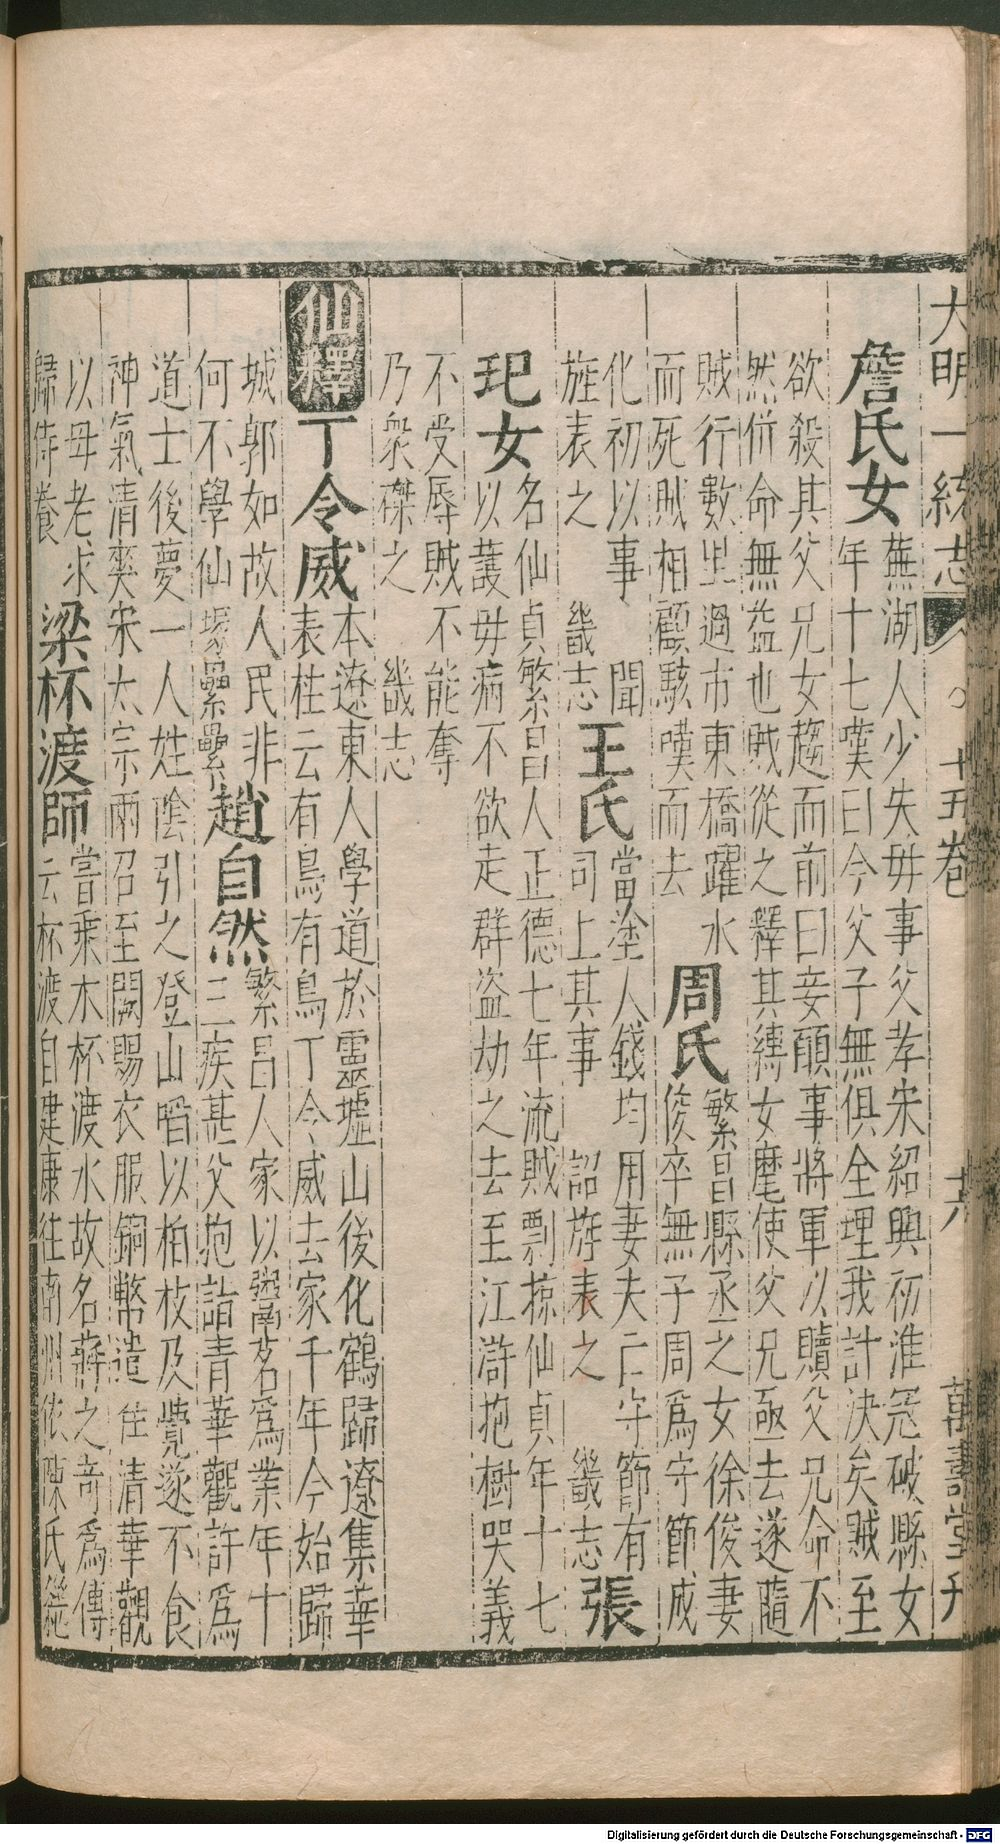 大明一統志 八 ○ 十五卷 十六 萬壽堂刊
詹氏女
蕪湖人少失毋事父孝宋紹興初淮冦破縣女
年十七嘆曰今父子無俱全理我計決矣賊至
欲殺其父兄女趨而前曰妾願事將軍以贖父兄命不
然併命無益也賊從之釋其縛女麾使父兄亟去遂隨
賊行數里過市東橋躍水
而死賊相顧駭嘆而去
周氏
繁昌縣丞之女徐俊妻
俊卒無子周爲守節成
化初以事 聞
旌表之 畿志
王氏
當塗人錢均用妻夫亡守節有
司上其事 詔旌表之 畿志
張
玘女
名仙貞繁昌人正德七年流賊剽掠仙貞年十七
以䕶毋病不欲走群盗劫之去至江滸抱樹哭義
不受辱賊不能奪
乃衆磔之 畿志
仙釋
丁令威
本遼東人學道於靈墟山後化鶴歸遼集華
表柱云有鳥有鳥丁令威去家千年今始歸
城郭如故人民非
何不學仙塚纍纍
趙自然
繁昌人家以鬻茗爲業年十
三疾甚父抱詣青華觀許爲
道士後夢一人姓陰引之登山啗以栢枝及覺遂不食
神氣清爽宋太宗兩召至闕賜衣服銅幣遣住清華觀
以毋老求
歸侍養
梁杯渡師
嘗乘木杯渡水故名蔣之奇爲傳
云杯渡自建康往南州依陳氏從
Digitalisierung gefördert durch die Deutsche Forschungsgemeinschaft - DFG